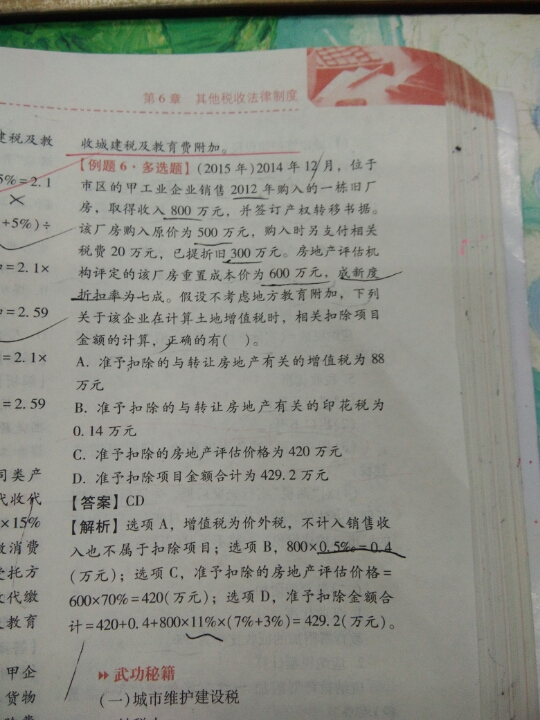 第6章 其他税收法律制度
收城建税及教育费附加。
【例题6·多选题】(2015年)2014年12月，位于
市区的甲工业企业销售2012年购入的一栋旧厂
房，取得收入800万元，并签订产权转移书据。
该厂房购入原价为500万元，购入时另支付相关
税费20万元，已提折旧300万元。房地产评估机
构评定的该厂房重置成本价为600万元，成新度
折扣率为七成。假设不考虑地方教育附加，下列
关于该企业在计算土地增值税时，相关扣除项目
金额的计算，正确的有( )。
A. 准予扣除的与转让房地产有关的增值税为88
万元
B. 准予扣除的与转让房地产有关的印花税为
0.14万元
C. 准予扣除的房地产评估价格为420万元
D. 准予扣除项目金额合计为429.2万元
【答案】CD
【解析】选项A，增值税为价外税，不计入销售收
入也不属于扣除项目；选项B，800×0.5‰=0.4
(万元)；选项C，准予扣除的房地产评估价格=
600×70%=420(万元)；选项D，准予扣除金额合
计=420+0.4+800×11%×(7%+3%)=429.2(万元)。
武功秘籍
(一)城市维护建设税
建税及教
5%=2.1
+5%)÷
=2.1×
=2.59
=2.1×
=2.59
同类产
代收代
×15%
缴消费
受托方
代缴
教育
甲企
货物